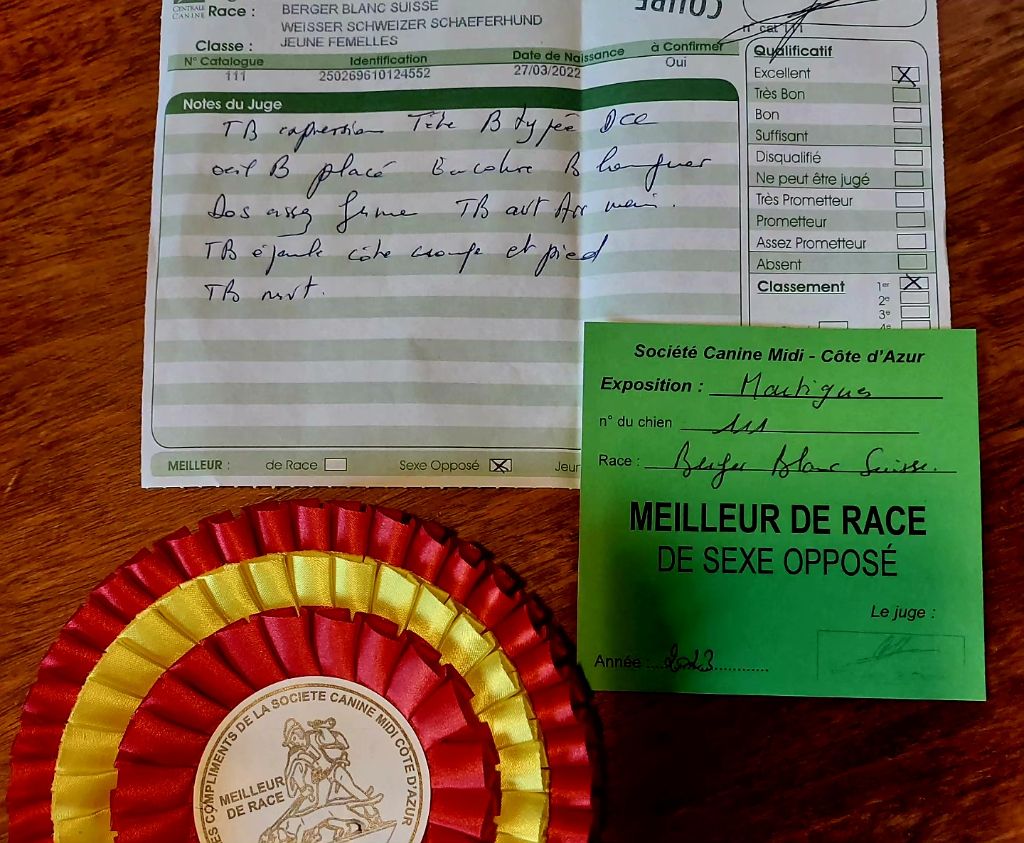 CENTRALE
CANINE
Race : BERGER BLANC SUISSE
WEISSER SCHWEIZER SCHAEFERHUND
Classe : JEUNE FEMELLES
N° Catalogue Identification Date de Naissance à Confirmer
111 250269610124552 27/03/2022 Oui
COUPE
n° cat 111
Notes du Juge
TB expression Tête B typée
oeil B placé Encolure B longueur
Dos assez ferme TB avt Arr main.
TB côte croupe et pied
TB mvt.
Qualificatif
Excellent X
Très Bon
Bon
Suffisant
Disqualifié
Ne peut être jugé
Très Prometteur
Prometteur
Assez Prometteur
Absent
Classement 1er X
2e
3e
4e
MEILLEUR : de Race Sexe Opposé X Jeun
Société Canine Midi - Côte d'Azur
Exposition : Martigues
n° du chien 111
Race : Berger Blanc Suisse.
MEILLEUR DE RACE
DE SEXE OPPOSÉ
Le juge :
Année : 2023
ES COMPLIMENTS DE LA SOCIETE CANINE MIDI COTE D'AZUR
MEILLEUR
DE RACE